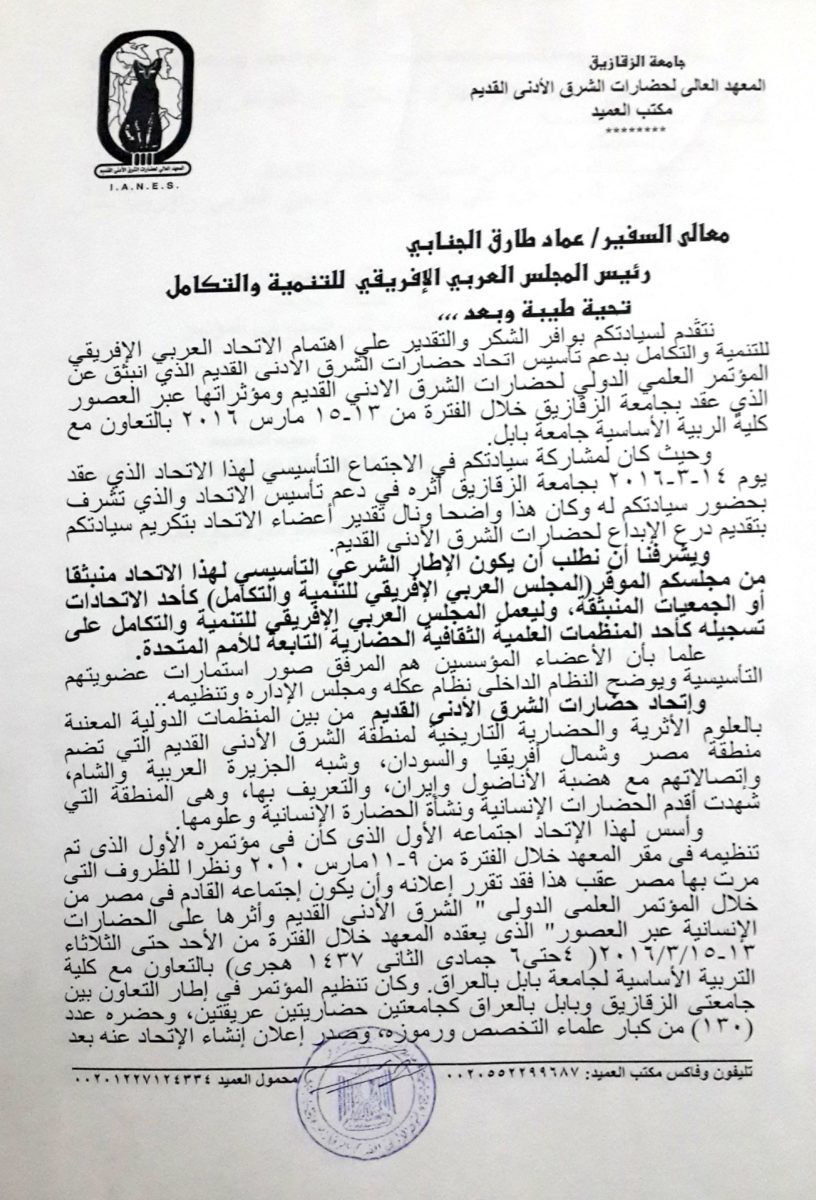 جامعة الزقازيق
المعهد العالى لحضارات الشرق الأدنى القديم
مكتب العميد
********
المعهد العالى لحضارات الشرق الأدنى القديم
I.A.N.E.S.
معالى السفير/ عماد طارق الجنابي
رئيس المجلس العربي الإفريقي للتنمية والتكامل
تحية طيبة وبعد ,,,
نتقدم لسيادتكم بوافر الشكر والتقدير علي اهتمام الاتحاد العربي الإفريقي
للتنمية والتكامل بدعم تأسيس اتحاد حضارات الشرق الادنى القديم الذي انبثق عن
المؤتمر العلمي الدولي لحضارات الشرق الادني القديم ومؤثراتها عبر العصور
الذي عقد بجامعة الزقازيق خلال الفترة من ١٣-١٥ مارس ٢٠١٦ بالتعاون مع
كلية الربية الأساسية جامعة بابل.
وحيث كان لمشاركة سيادتكم في الاجتماع التأسيسي لهذا الاتحاد الذي عقد
يوم ١٤-٣-٢٠١٦ بجامعة الزقازيق أثره في دعم تأسيس الاتحاد والذي تشرف
بحضور سيادتكم له وكان هذا واضحا ونال تقدير أعضاء الاتحاد بتكريم سيادتكم
بتقديم درع الإبداع لحضارات الشرق الأدنى القديم.
ويشرفنا أن نطلب أن يكون الإطار الشرعي التأسيسي لهذا الاتحاد منبثقا
من مجلسكم الموقر(المجلس العربي الإفريقي للتنمية والتكامل) كأحد الاتحادات
أو الجمعيات المنبثقة، وليعمل المجلس العربي الإفريقي للتنمية والتكامل على
تسجيله كأحد المنظمات العلمية الثقافية الحضارية التابعة للأمم المتحدة.
علما بأن الأعضاء المؤسسين هم المرفق صور استمارات عضويتهم
التأسيسية ويوضح النظام الداخلى نظام عكله ومجلس الإداره وتنظيمه..
وإتحاد حضارات الشرق الأدنى القديم من بين المنظمات الدولية المعنية
بالعلوم الأثرية والحضارية التاريخية لمنطقة الشرق الأدنى القديم التي تضم
منطقة مصر وشمال أفريقيا والسودان، وشبه الجزيرة العربية والشام،
وإتصالاتهم مع هضبة الأناضول وإيران، والتعريف بها، وهى المنطقة التي
شهدت أقدم الحضارات الإنسانية ونشأة الحضارة الإنسانية وعلومها.
وأسس لهذا الإتحاد اجتماعه الأول الذى كان فى مؤتمره الأول الذى تم
تنظيمه فى مقر المعهد خلال الفترة من ٩-١١مارس ٢٠١٠ ونظرا للظروف التى
مرت بها مصر عقب هذا فقد تقرر إعلانه وأن يكون إجتماعه القادم فى مصر من
خلال المؤتمر العلمى الدولى " الشرق الأدنى القديم وأثرها على الحضارات
الإنسانية عبر العصور" الذى يعقده المعهد خلال الفترة من الأحد حتى الثلاثاء
١٣-٢٠١٦/٣/١٥( ٤حتى٦ جمادى الثانى ١٤٣٧ هجرى) بالتعاون مع كلية
التربية الأساسية لجامعة بابل بالعراق. وكان تنظيم المؤتمر في إطار التعاون بين
جامعتى الزقازيق وبابل بالعراق كجامعتين حضاريتين عريقتين، وحضره عدد
(١٣٠) من كبار علماء التخصص ورموزه، وصدر إعلان إنشاء الإتحاد عنه بعد
تليفون وفاكس مكتب العميد: ٠٠٢٠٥٥٢٢٩٩٦٨٧ محمول العميد ٠٠٢٠١٢٢٧١٢٤٣٣٤